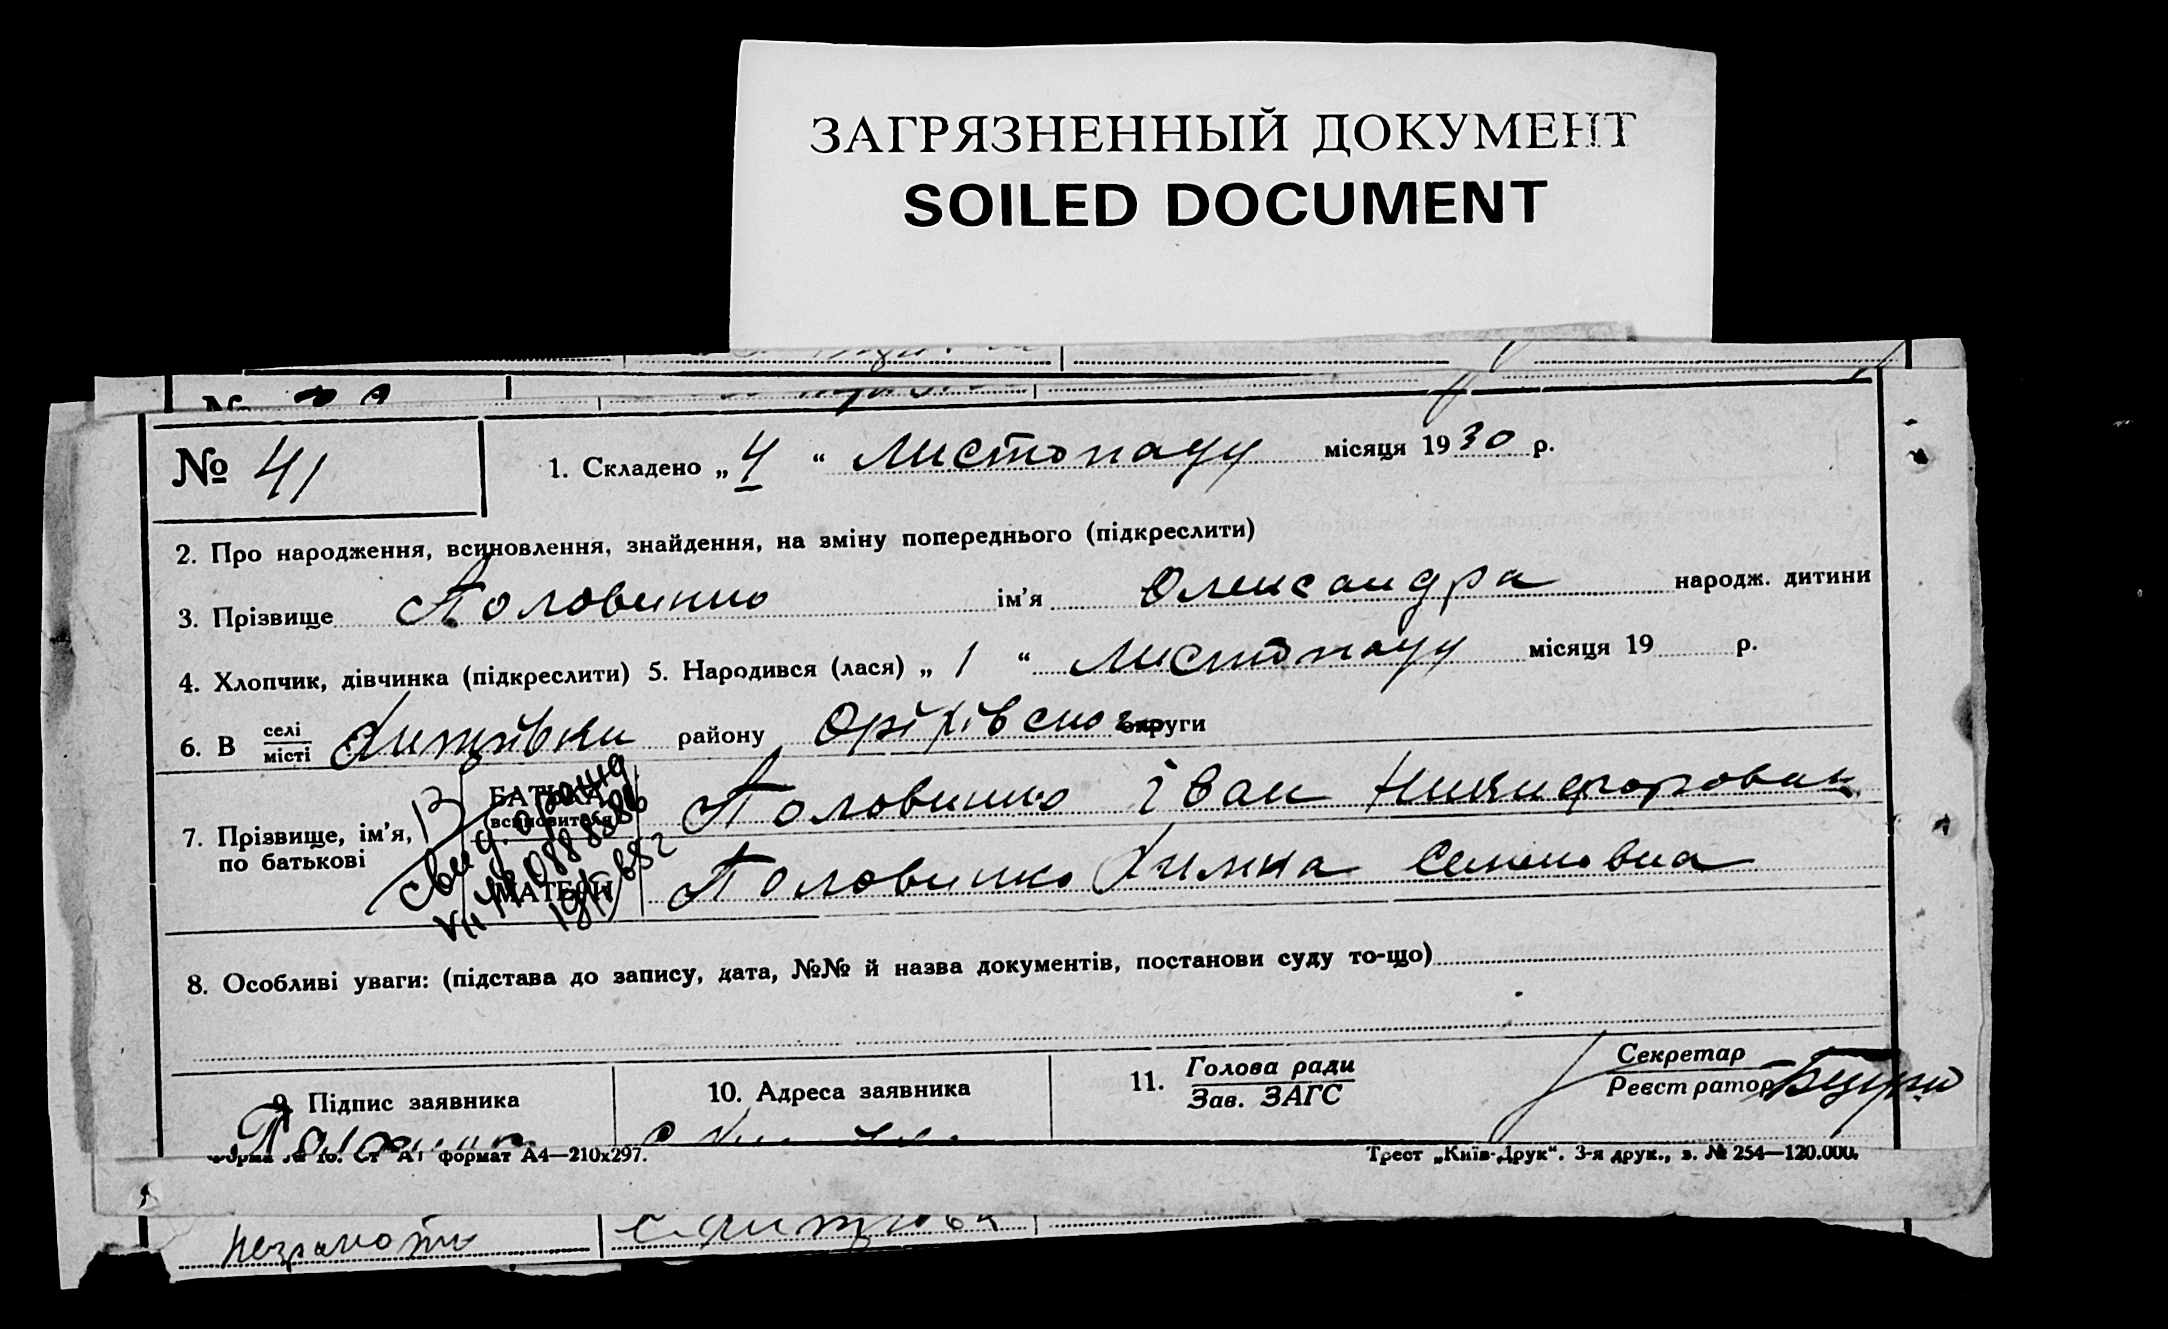 ЗАГРЯЗНЕННЫЙ ДОКУМЕНТ
SOILED DOCUMENT
№ 41
1. Складено „ 4 “ листопаду місяця 1930 р.
2. Про народження, всиновлення, знайдення, на зміну попереднього (підкреслити)
3. Прізвище Половинко ім’я Олександра народж. дитини
4. Хлопчик, дівчинка (підкреслити) 5. Народився (лася) „ 1 “ листопаду місяця 19 р.
6. В селі/місті району Оріхівского округи
7. Прізвище, ім’я, по батькові
БАТЬКА всиновителя Половинко Іван
МАТЕРИ Половинко Химка Семеновна
8. Особливі уваги: (підстава до запису, дата, №№ й назва документів, постанови суду то-що)
9. Підпис заявника
10. Адреса заявника
11. Голова ради
Зав. ЗАГС
Секретар
Реєстратор
формат А4—210х297.
Трест „Київ-Друк“. 3-я друк., з. № 254—120.000.